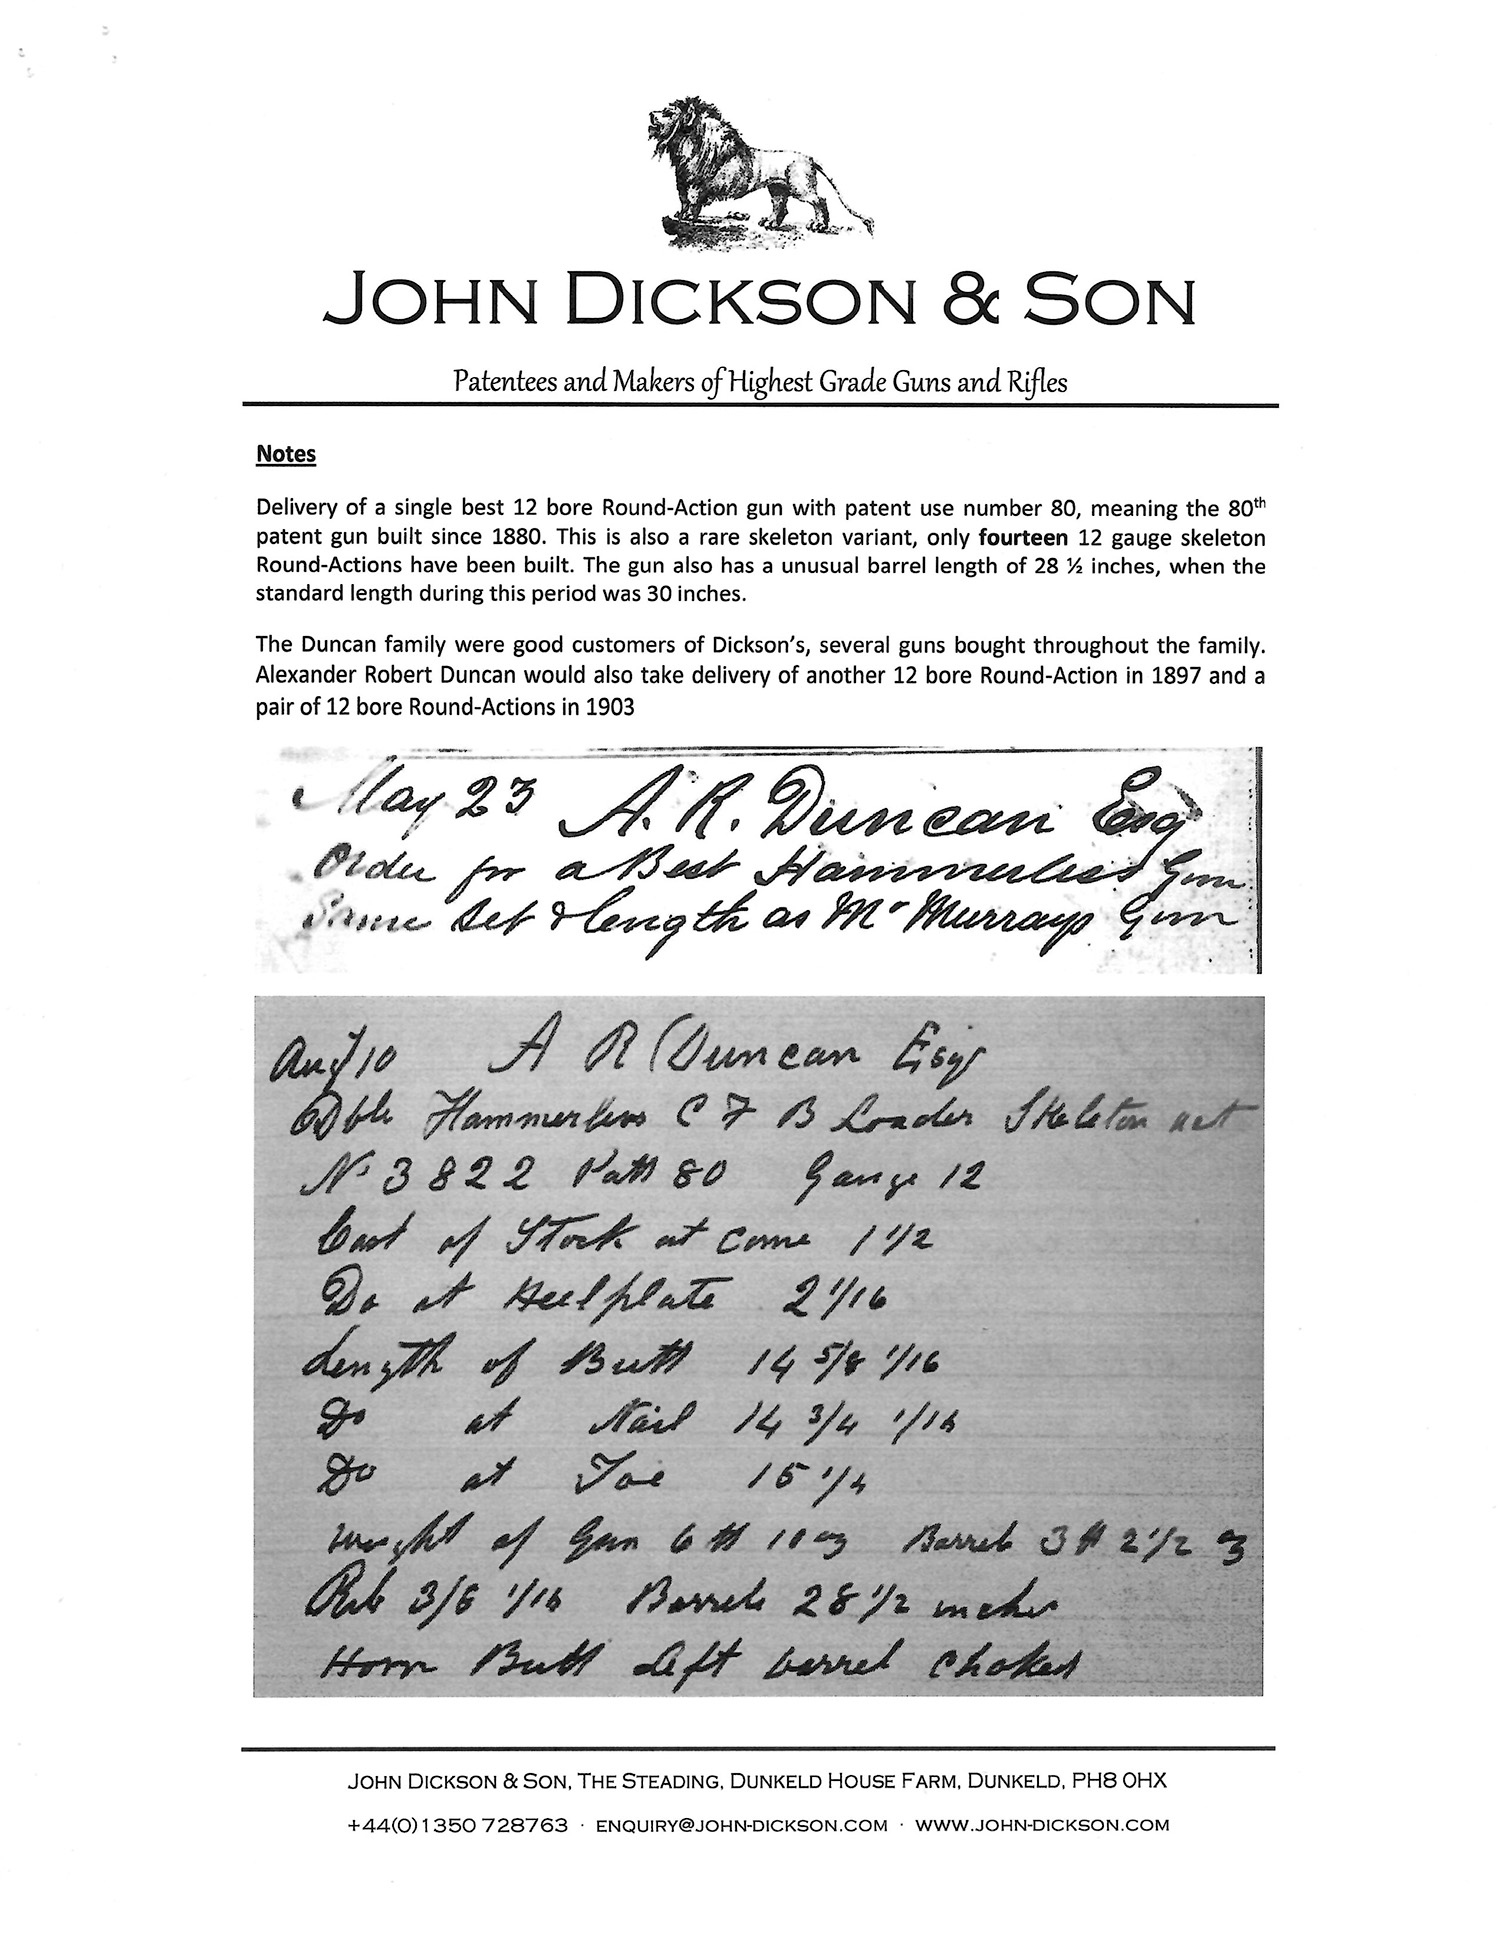 JOHN DICKSON & SON
Patentees and Makers of Highest Grade Guns and Rifles
Notes
Delivery of a single best 12 bore Round-Action gun with patent use number 80, meaning the 80th
patent gun built since 1880. This is also a rare skeleton variant, only fourteen 12 gauge skeleton
Round-Actions have been built. The gun also has a unusual barrel length of 28 ½ inches, when the
standard length during this period was 30 inches.
The Duncan family were good customers of Dickson's, several guns bought throughout the family.
Alexander Robert Duncan would also take delivery of another 12 bore Round-Action in 1897 and a
pair of 12 bore Round-Actions in 1903
May 23 A. R. Duncan Esq
Order for a Best Hammerless Gun
Same Set & length as Mr Murrays Gun
Augt 10 A R Duncan Esqr
Dble Hammerless C F B Loader Skeleton act
No 3822 Patt 80 Gauge 12
Cast of Stock at Come 1 1/2
Do at Heelplate 2 1/16
Length of Butt 14 5/8 1/16
Do at Nail 14 3/4 1/16
Do at Toe 15 1/4
Weight of Gun 6 lb 10 oz Barrels 3 lb 2 1/2 oz
Rib 3/8 1/16 Barrels 28 1/2 inches
Horn Butt Left barrel choked
JOHN DICKSON & SON, THE STEADING, DUNKELD HOUSE FARM, DUNKELD, PH8 0HX
+44(0)1350 728763 · ENQUIRY@JOHN-DICKSON.COM · WWW.JOHN-DICKSON.COM